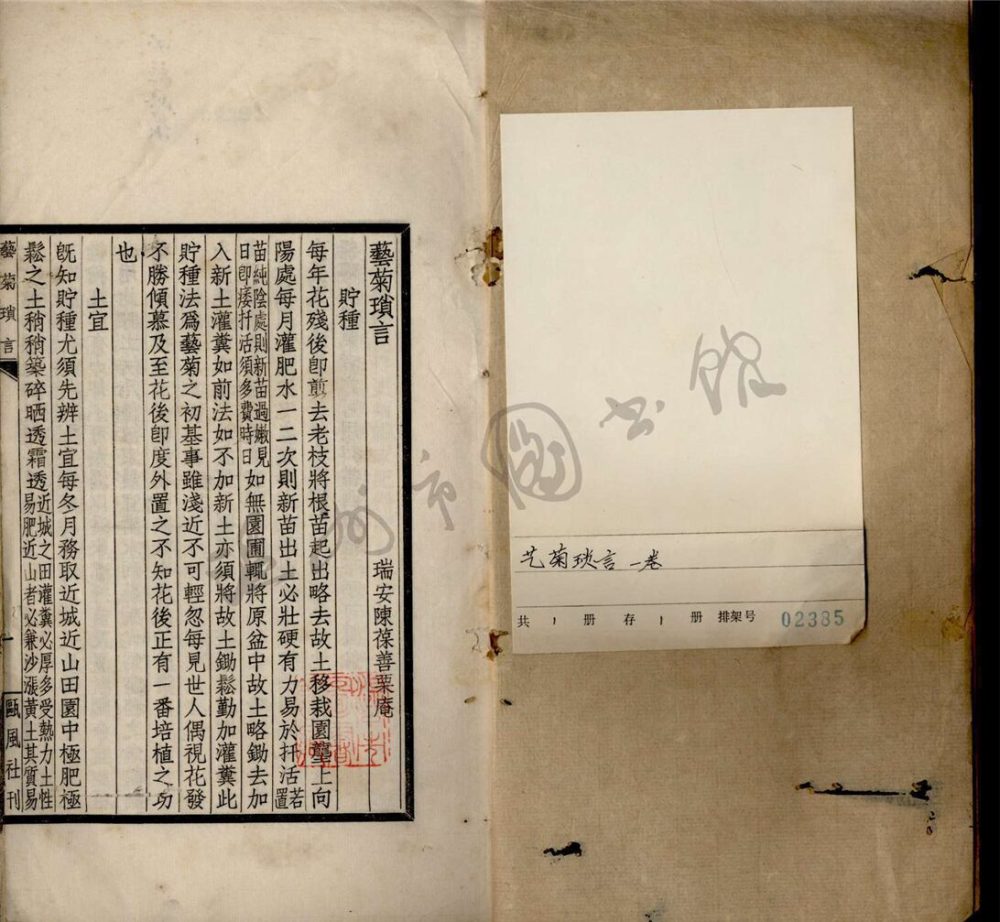 藝菊瑣言
瑞安陳葆善栗庵
貯種
每年花殘後卽剪去老枝將根苗起出略去故土移栽園壟上向
陽處每月灌肥水一二次則新苗出土必壯硬有力易於扦活若置
苗純陰處則新苗過嫩見
日卽痿扦活須多費時日如無園圃輒將原盆中故土略鋤去加
入新土灌糞如前法如不加新土亦須將故土鋤鬆勤加灌糞此
貯種法爲藝菊之初基事雖淺近不可輕忽每見世人偶視花發
不勝傾慕及至花後卽度外置之不知花後正有一番培植之功
也
土宜
旣知貯種尤須先辨土宜每冬月務取近城近山田園中極肥極
鬆之土稍稍築碎晒透霜透近城之田灌糞必厚多受熱力土性
易肥近山者必兼沙漲黃土其質易
藝菊瑣言
一
甌風社刊
艺菊琐言 一卷
共 1 册 存 1 册 排架号 02385
州市圖书館